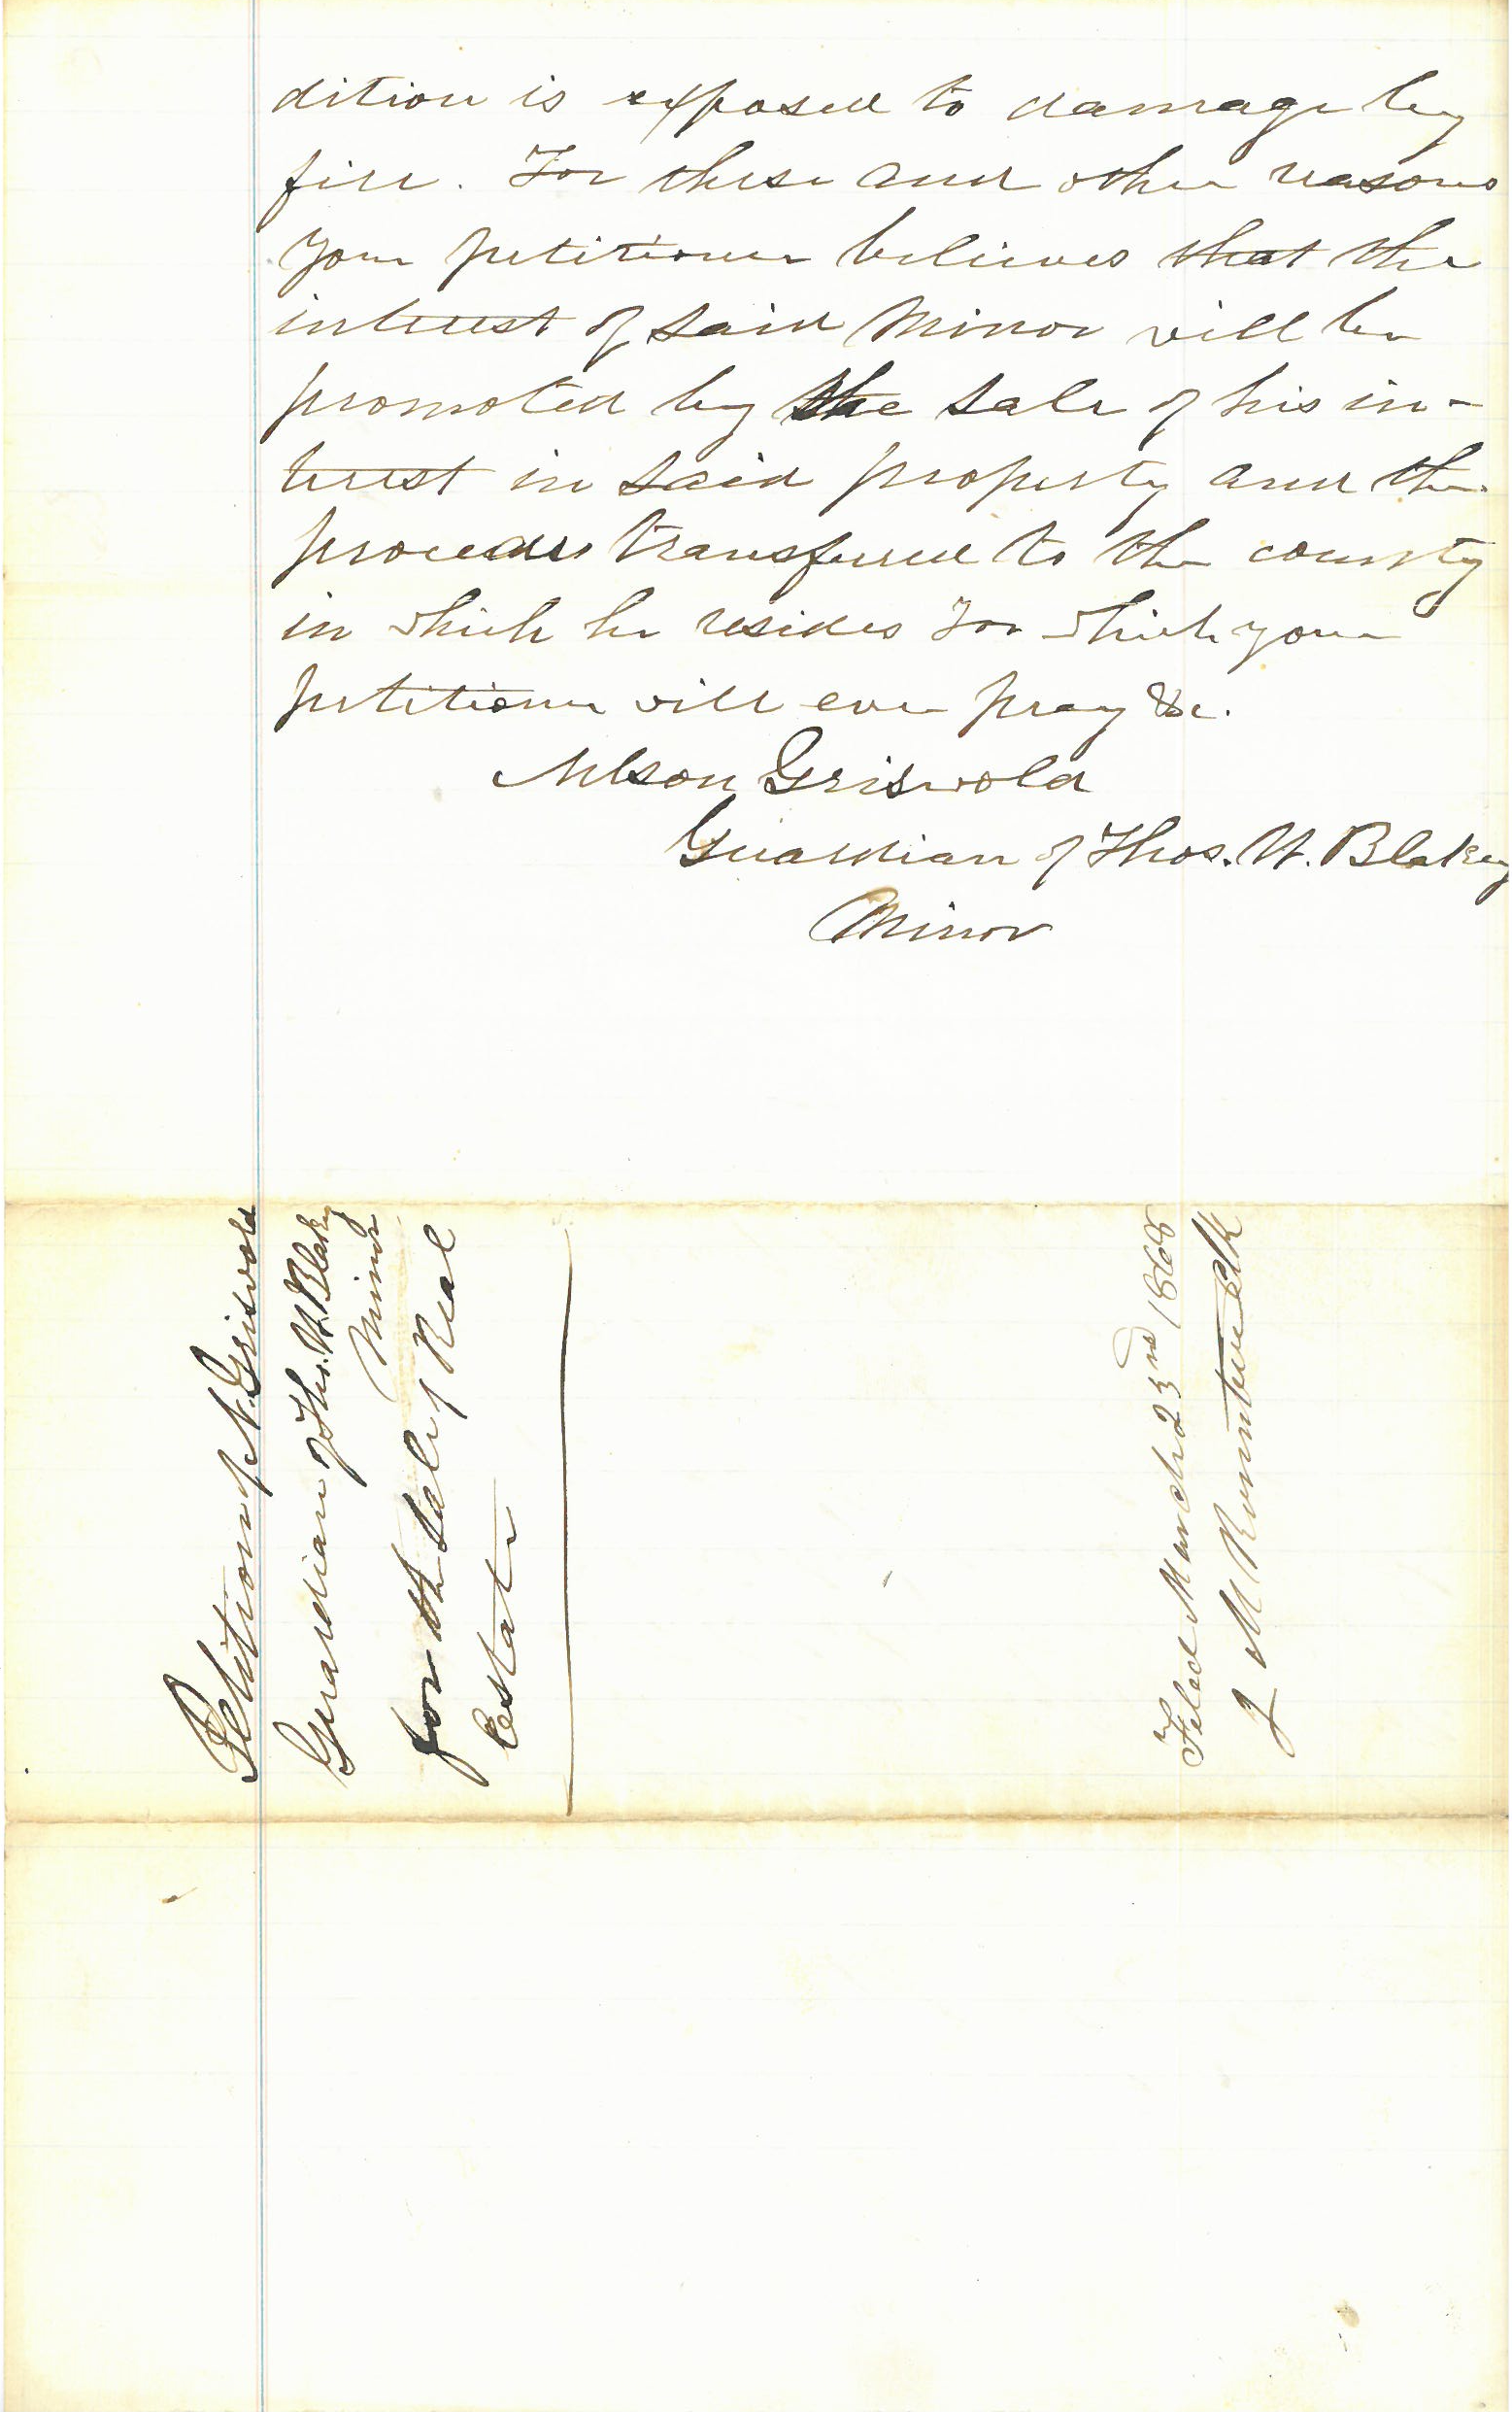 dition is exposed to damage by
fire. For these and other reasons
your petitioner believes that the
interest of said Minor will be
promoted by the sale of his in-
terest in said property and the
proceeds transfered to the county
in which he resides For which your
petitioner will ever pray &c.
Nelson Griswold
Guardian of Thos. W. Blakey
Minor
Petition of N. Griswold
Guardian of Thos. W. Blakey
Minor
for the sale of Real
Estate
Filed March 23rd 1868
J M clk